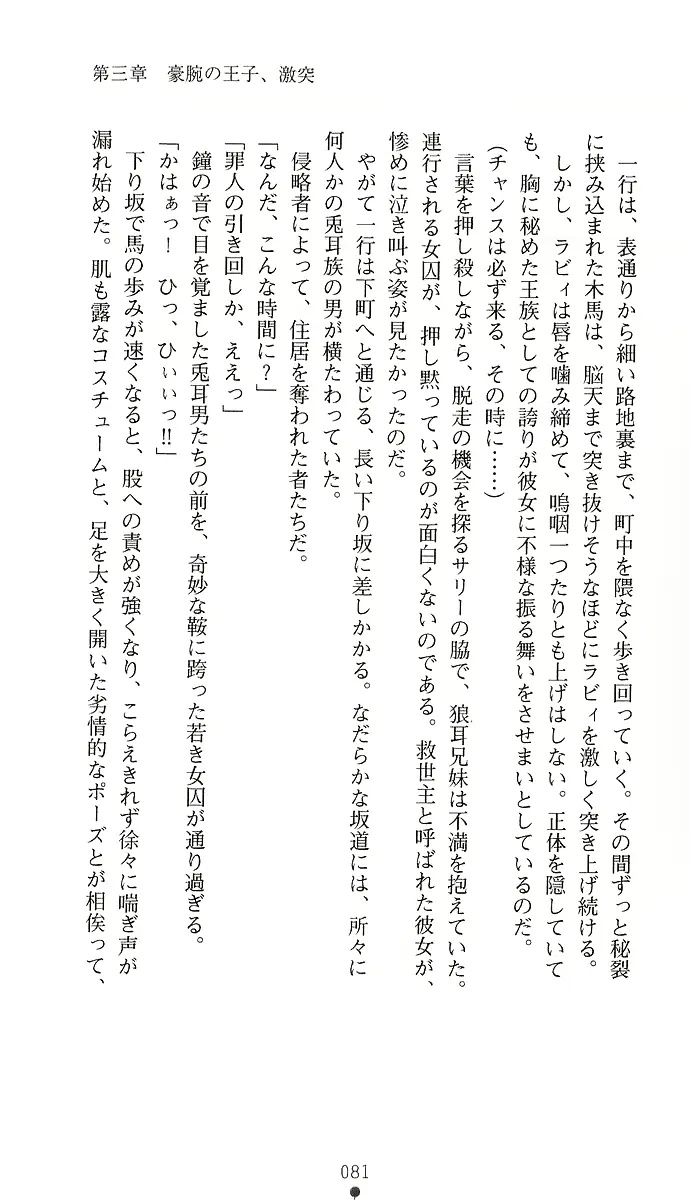 第三章　豪腕の王子、激突
　一行は、表通りから細い路地裏まで、町中を隈なく歩き回っていく。その間ずっと秘裂
に挟み込まれた木馬は、脳天まで突き抜けそうなほどにラビィを激しく突き上げ続ける。
　しかし、ラビィは唇を噛み締めて、嗚咽一つたりとも上げはしない。正体を隠していて
も、胸に秘めた王族としての誇りが彼女に不様な振る舞いをさせまいとしているのだ。
（チャンスは必ず来る、その時に……）
　言葉を押し殺しながら、脱走の機会を探るサリーの脇で、狼耳兄妹は不満を抱えていた。
連行される女囚が、押し黙っているのが面白くないのである。救世主と呼ばれた彼女が、
惨めに泣き叫ぶ姿が見たかったのだ。
　やがて一行は下町へと通じる、長い下り坂に差しかかる。なだらかな坂道には、所々に
何人かの兎耳族の男が横たわっていた。
　侵略者によって、住居を奪われた者たちだ。
「なんだ、こんな時間に？」
「罪人の引き回しか、ええっ」
　鐘の音で目を覚ました兎耳男たちの前を、奇妙な鞍に跨った若き女囚が通り過ぎる。
「かはぁっ！　ひっ、ひぃぃっ‼」
　下り坂で馬の歩みが速くなると、股への責めが強くなり、こらえきれず徐々に喘ぎ声が
漏れ始めた。肌も露なコスチュームと、足を大きく開いた劣情的なポーズとが相俟って、
081